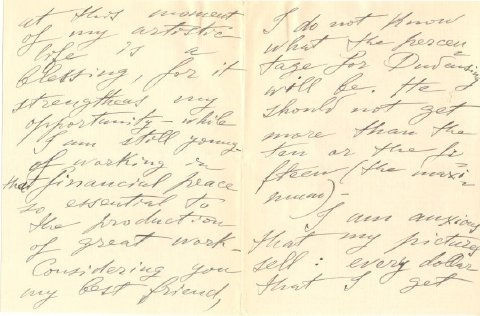 at this moment
of my artistic
life is a
blessing, for it
strengthens my
opportunity – while
I am still young –
of working in
that financial peace
so essential to
the production
of great work –
Considering you
my best friend,
I do not know
what the percen
tage for Dudensing
will be. He
should not get
more than the
ten or the fif
teen (the maxi
mum) –
I am anxious
that my pictures
sell : every dollar
that I get